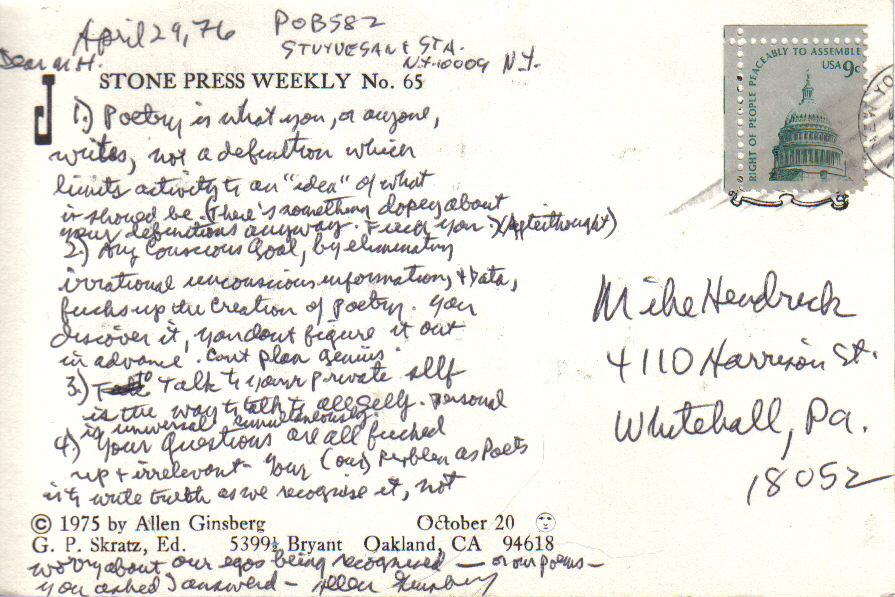 April 29, 76 POB 582
STUYVESANT STA.
Dear M H. N.Y. 10009 N.Y.
STONE PRESS WEEKLY No. 65
J
1.) Poetry is what you, or anyone,
writes, not a definition which
limits activity to an "idea" of what
it should be. (There's something dopey about
your definitions anyway. Fuck you.) (Afterthought)
2.) Any Conscious Goal, by eliminating
irrational unconscious information, & data,
fucks up the creation of Poetry. You
discover it, you dont figure it out
in advance. Cant plan genius.
3.) to Talk to your private self
is the way to talk to all. Personal
is universal simultaneously.
4.) Your Questions are all fucked
up & irrelevant - Your (our) problem as Poets
is to write truth as we recognise it, not
© 1975 by Allen Ginsberg October 20
G. P. Skratz, Ed. 5399½ Bryant Oakland, CA 94618
worry about our egos being recognised — or our poems —
you asked I answerd — Allen Ginsberg
RIGHT OF PEOPLE PEACEABLY TO ASSEMBLE
USA 9c
Mike Hendrick
4110 Harrison St.
Whitehall, Pa.
18052